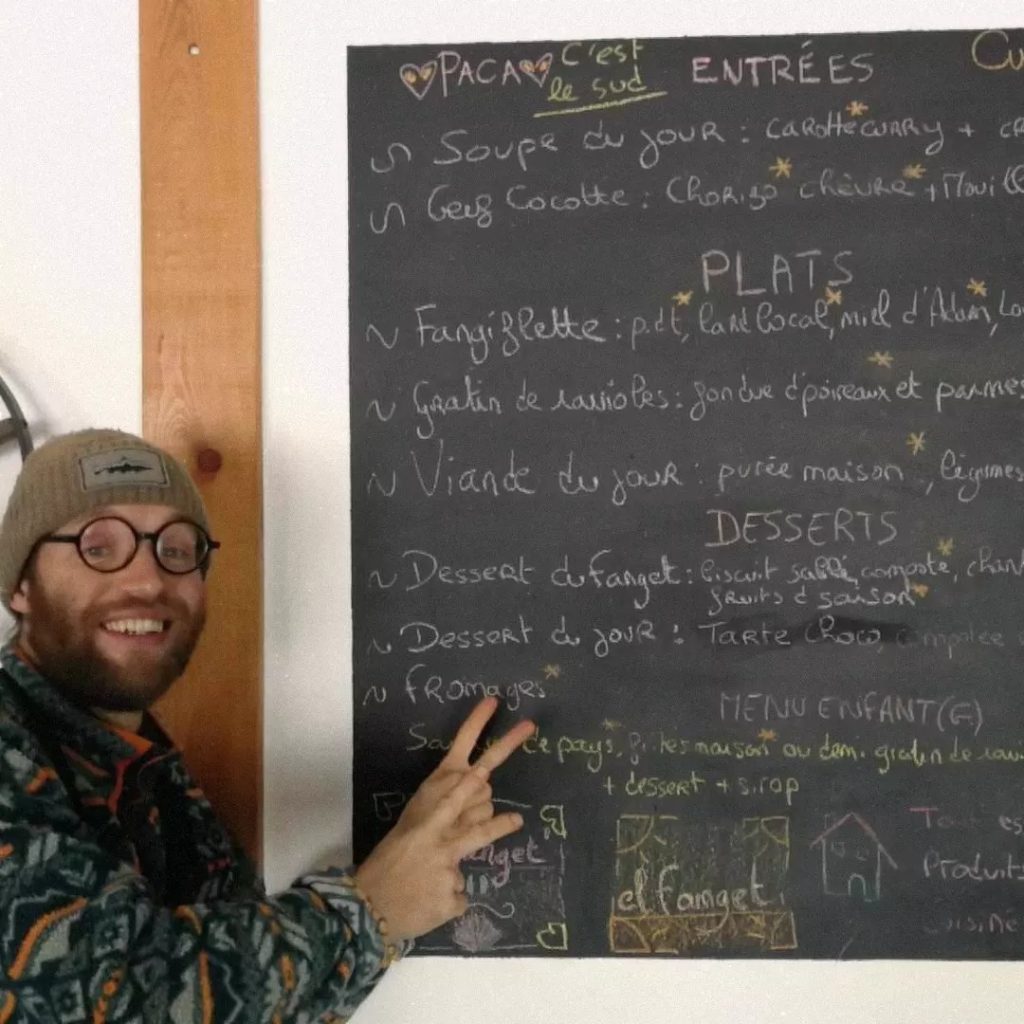 PACA C'est le sud
ENTRÉES
Soupe du jour : carotte curry +
Oeuf Cocotte : Chorizo chèvre + Mouill
PLATS
Fangiflette : p.d.t, lard local, miel d'Adam,
Gratin de ravioles : fondue d'poireaux et parmes
Viande du jour : purée maison, légumes
DESSERTS
Dessert du fanget : biscuit sablé, compote,
fruits d saison
Dessert du jour : Tarte Choco,
fromages
MENU ENFANT(G)
de pays, maison ou demi gratin de
+ dessert + sirop
anget
el fanget
Produits